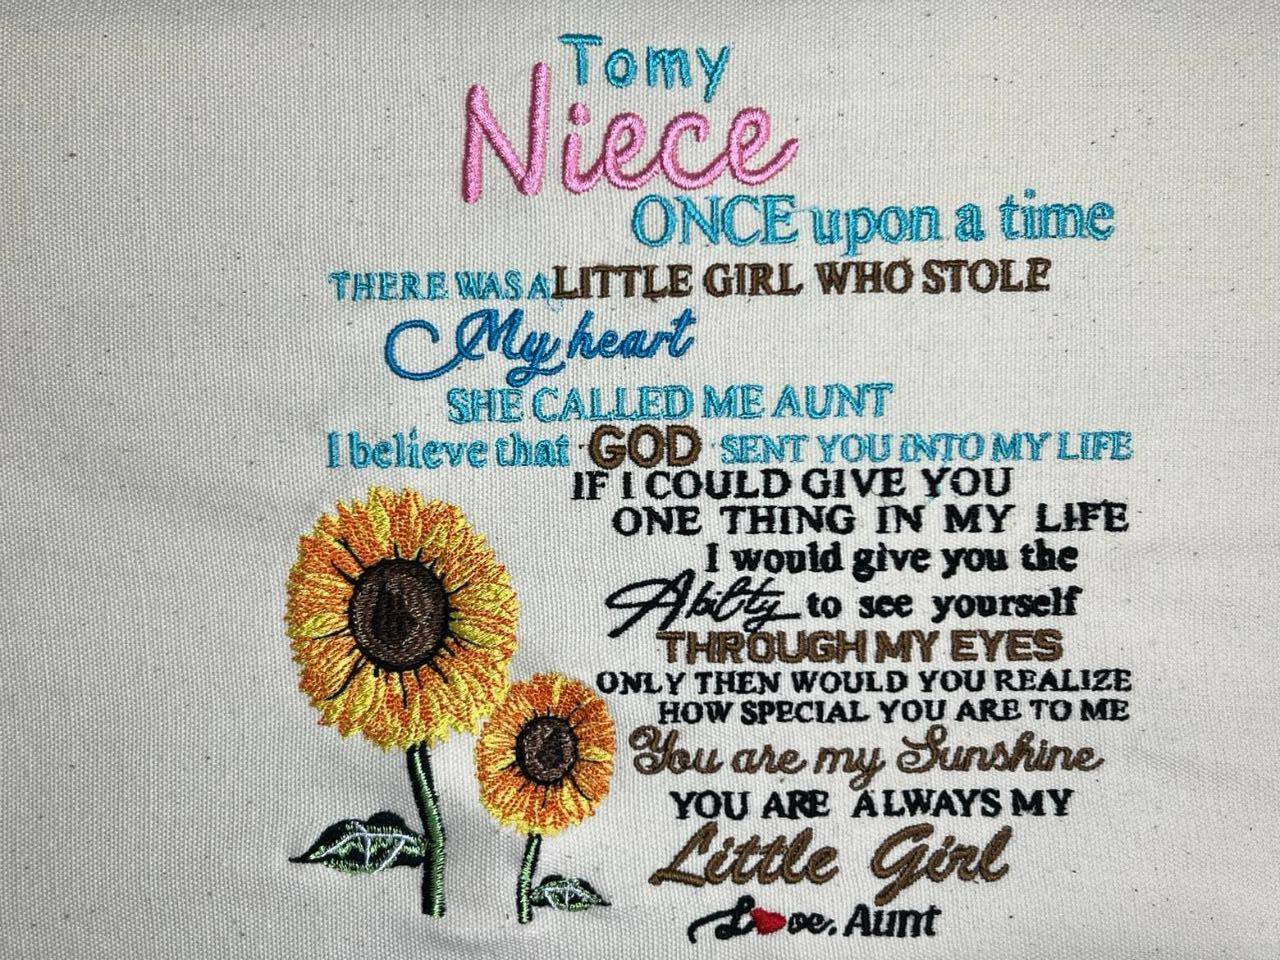 Tomy
Niece
ONCE upon a time
THERE WAS A LITTLE GIRL WHO STOLE
My heart
SHE CALLED ME AUNT
I believe that GOD SENT YOU INTO MY LIFE
IF I COULD GIVE YOU
ONE THING IN MY LIFE
I would give you the
Abilty to see yourself
THROUGH MY EYES
ONLY THEN WOULD YOU REALIZE
HOW SPECIAL YOU ARE TO ME
You are my Sunshine
YOU ARE ALWAYS MY
Little Girl
Love. Aunt